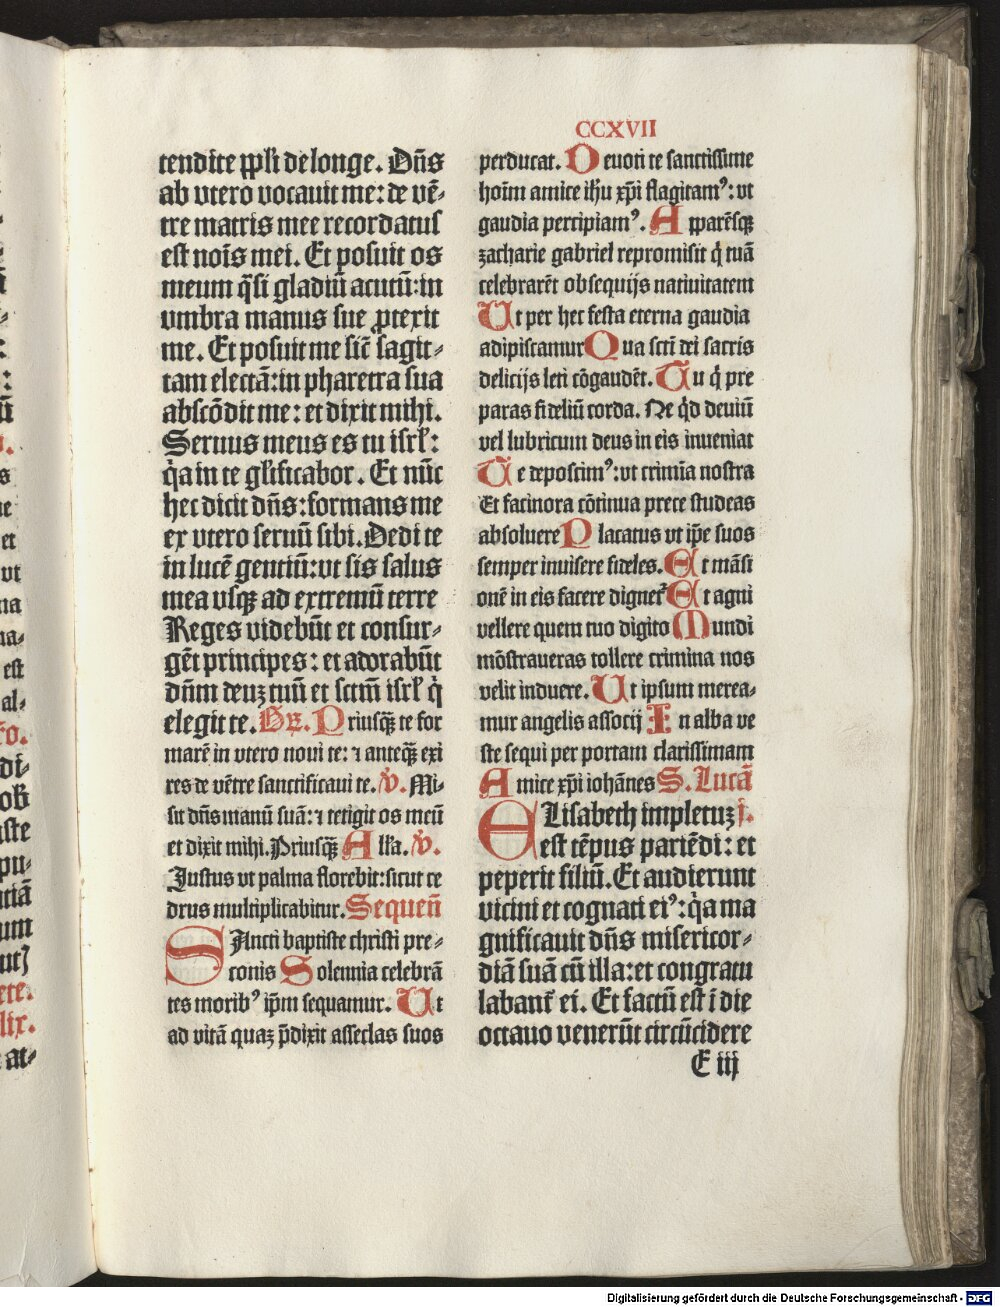 CCXVII
tendite ppli de longe. Dn̄s
ab vtero vocauit me: de vē⸗
tre matris mee recordatus
est noīs mei. Et posuit os
meum q̄si gladiū acutū: in
vmbra manus sue ꝓtexit
me. Et posuit me sic̄ sagit⸗
tam electā: in pharetra sua
abscōdit me: et dixit mihi.
Seruus meus es tu isrl̓:
q̓a in te gl̓ificabor. Et nūc
hec dicit dn̄s: formans me
ex vtero seruū sibi. Dedi te
in lucē gentiū: vt sis salus
mea vsqꝫ ad extremū terre
Reges videbūt et consur⸗
gēt principes: et adorabūt
dn̄m deuꝫ tuū et sctm̄ isrl̓ q̓
elegit te. Gꝝ. Priusqꝫ̄ te for
marē in vtero noui te: ⁊ anteqꝫ̄ exi
res de vētre sanctificaui te. v̓. Mi⸗
sit dn̄s manū suā: ⁊ tetigit os meū
et dixit mihi. Priusqꝫ̄ All̓a. v̓.
Justus vt palma florebit: sicut ce
drus multiplicabitur. Sequen̄
SAncti baptiste christi pre⸗
conis Solennia celebrā
tes moribꝰ ip̄m sequamur. Ut
ad vitā quaꝫ p̄dixit asseclas suos
perducat. Deuoti te sanctissime
hoīm amice ihu xp̄i flagitamꝰ: vt
gaudia percipiamꝰ. Apparēsqꝫ
zacharie gabriel repromisit q̓ tuā
celebrarēt obsequijs natiuitatem
Ut per hec festa eterna gaudia
adipiscamur Qua scti dei sacris
delicijs leti cōgaudēt. Tu q̓ pre
paras fideliū corda. Ne q̓d deuiū
vel lubricum deus in eis inueniat
Te deposcimꝰ: vt crimīa nostra
Et facinora cōtinua prece studeas
absoluere Placatus vt ip̄e suos
semper inuisere fideles. Et māsi
onē in eis facere digner̄ Et agni
vellere quem tuo digito Mundi
mōstraueras tollere crimina nos
velit induere. Ut ipsum merea⸗
mur angelis associj In alba ve
ste sequi per portam clarissimam
Amice xp̄i iohānes S. Lucā
ELisabeth impletuꝫ j.
est tēpus pariēdi: et
peperit filiū. Et audierunt
vicini et cognati eiꝰ: q̓a ma
gnificauit dn̄s misericor⸗
diā suā cū illa: et congratu
labant̄ ei. Et factū est i die
octauo venerūt circūcidere
E iij
Digitalisierung gefördert durch die Deutsche Forschungsgemeinschaft - DFG